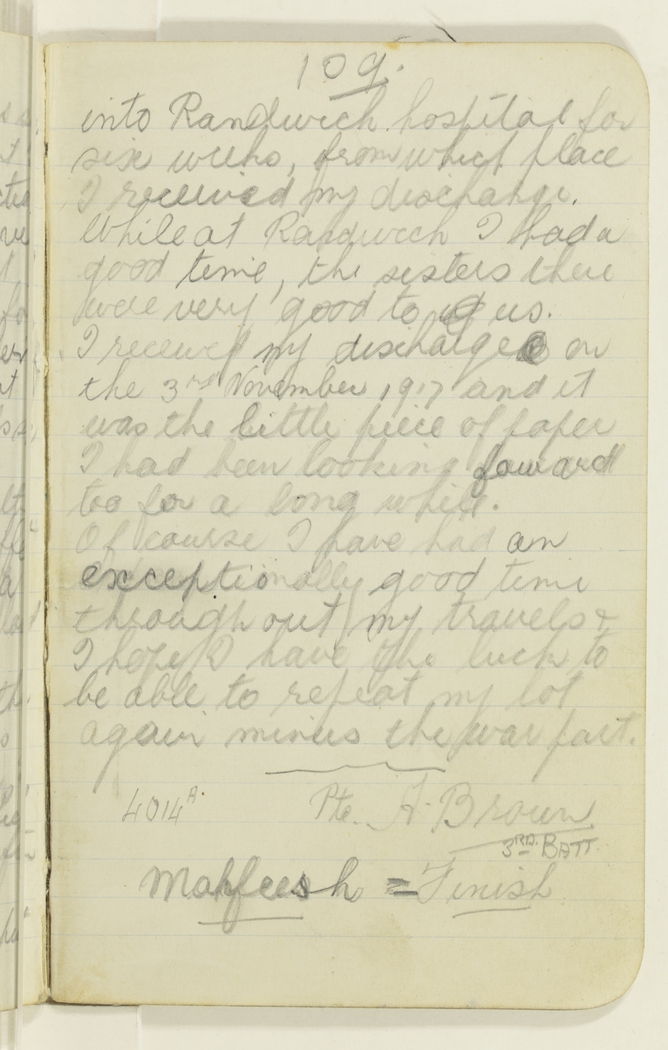 109.
into Randwich hospital for
six weeks, from which place
I received my discharge.
While at Randwich I had a
good time, the sisters there
were very good to us.
I received my discharge on
the 3rd November 1917 and it
was the little piece of paper
I had been looking foward
too for a long while.
Of course I have had an
exceptionally good time
throughout my travels &
I hope I have the luck to
be able to repeat my lot
again minus the war part.
4014A. Pte. A. Brown
3RD. BATT.
Mahfeesh = Finish